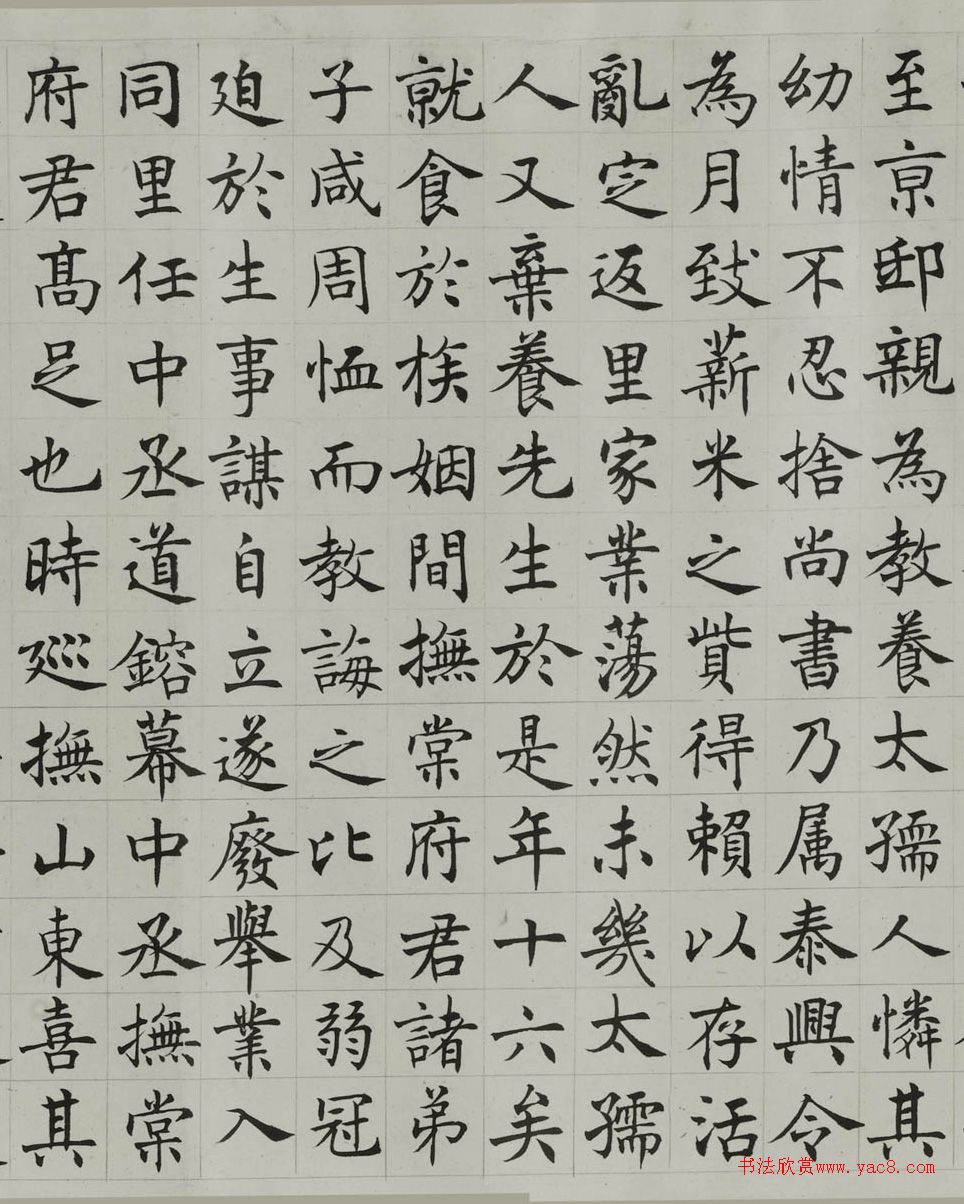 至京邸親為教養太孺人憐其
幼情不忍捨尚書乃属泰興令
為月致薪米之貲得賴以存活
亂定返里家業蕩然未幾太孺
人又棄養先生於是年十六矣
就食於族姻間撫棠府君諸弟
子咸周恤而教誨之比及弱冠
廹於生事謀自立遂廢舉業入
同里任中丞道鎔幕中丞撫棠
府君髙足也時廵撫山東喜其
书法欣赏www.yac8.com